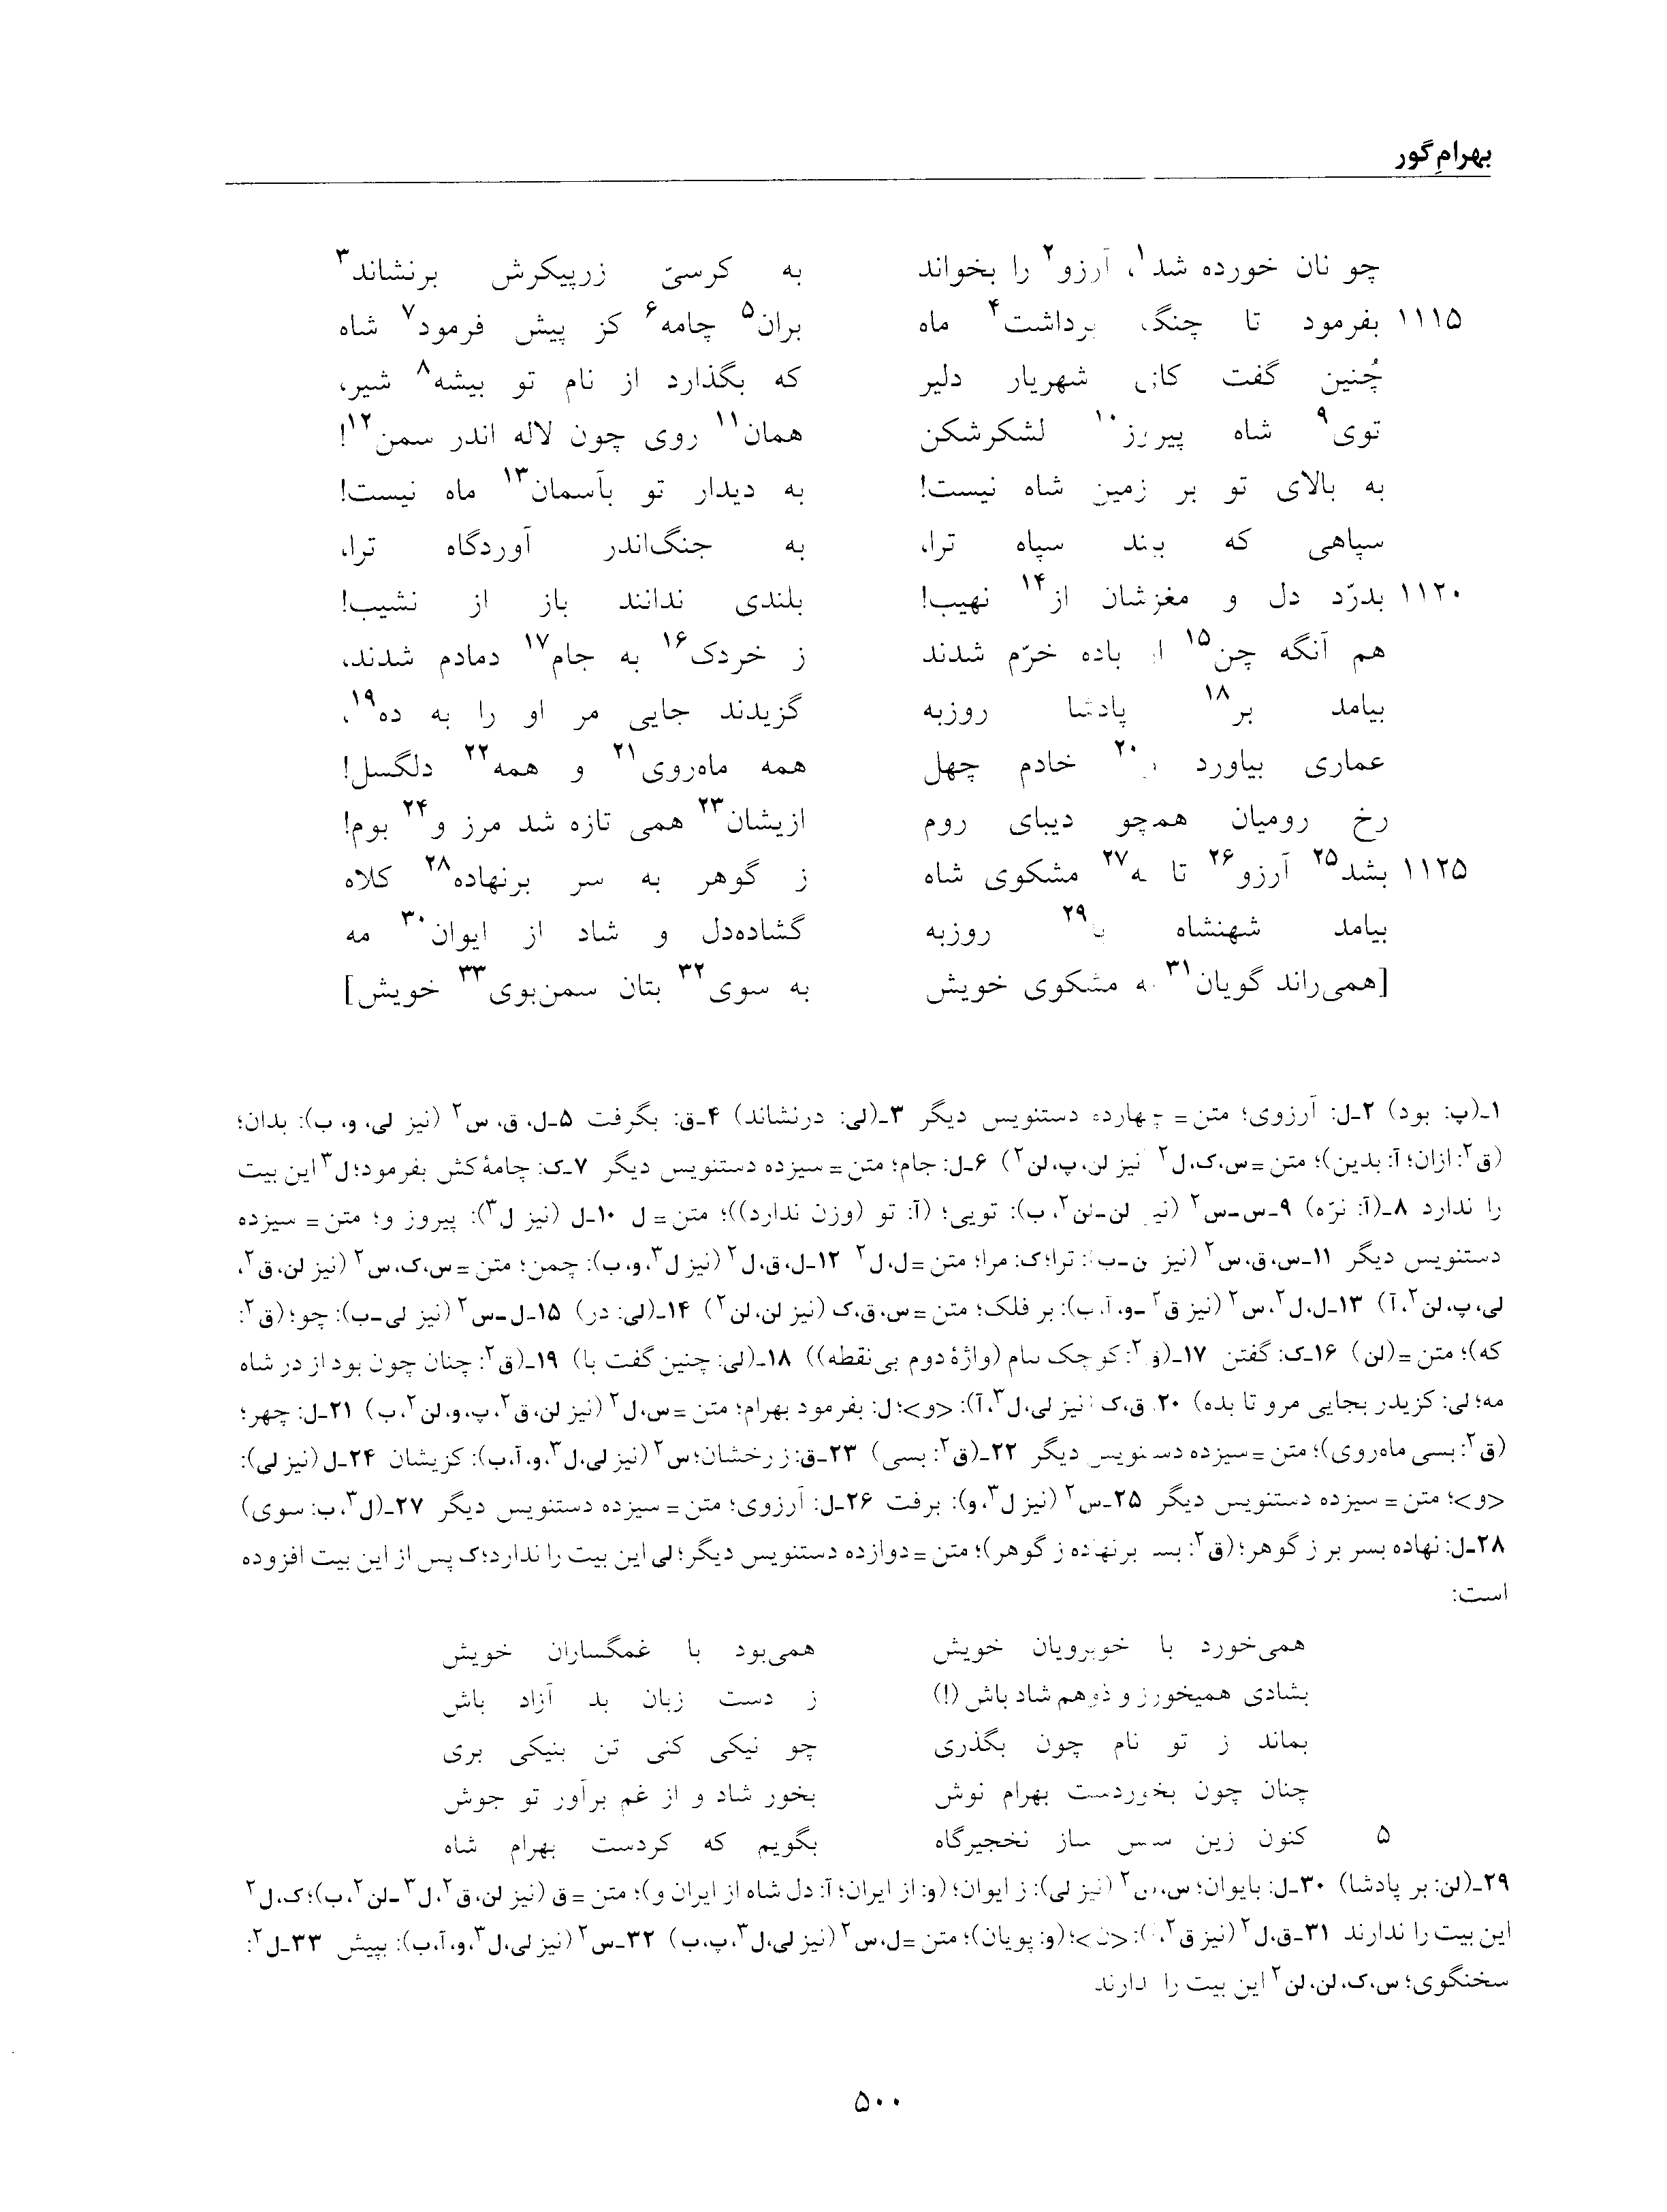 بهرامِ گور
چو نان خورده شد۱، آرزو۲ را بخواند به کرسیّ زرپیکرش برنشاند۳
۱۱۱۵ بفرمود تا چنگ برداشت۴ ماه بران۵ چامه۶ کز پیش فرمود۷ شاه
چُنین گفت کای شهریار دلیر که بگذارد از نام تو بیشه۸ شیر،
توی۹ شاه پیروز۱۰ لشکرشکن همان۱۱ روی چون لاله اندر سمن۱۲!
به بالای تو بر زمین شاه نیست! به دیدار تو بآسمان۱۳ ماه نیست!
سپاهی که بیند سپاه ترا، به جنگ‌اندر آوردگاه ترا،
۱۱۲۰ بدرّد دل و مغزشان از۱۴ نهیب! بلندی ندانند باز از نشیب!
هم آنگه چن۱۵ از باده خرّم شدند ز خردک۱۶ به جام۱۷ دمادم شدند،
بیامد بر۱۸ پادشا روزبه گزیدند جایی مر او را به ده۱۹،
عماری بیاورد و۲۰ خادم چهل همه ماه‌روی۲۱ و همه۲۲ دلگسل!
رخ رومیان همچو دیبای روم ازیشان۲۳ همی تازه شد مرز و۲۴ بوم!
۱۱۲۵ بشد۲۵ آرزو۲۶ تا به۲۷ مشکوی شاه ز گوهر به سر برنهاده۲۸ کلاه
بیامد شهنشاه با۲۹ روزبه گشاده‌دل و شاد از ایوان۳۰ مه
[همی‌راند گویان۳۱ به مشکوی خویش به سوی۳۲ بتان سمن‌بوی۳۳ خویش]
۱ـ(پ: بود) ۲ـ ل: آرزوی؛ متن = چهارده دستنویس دیگر ۳ـ(لی: درنشاند) ۴ـ ق: بگرفت ۵ـ ل، ق، س۲ (نیز لی، و، ب): بدان؛
(ق۲: ازان؛ آ: بدین)؛ متن = س، ک، ل۲ (نیز لن، پ، لن۲) ۶ـ ل: جام؛ متن = سیزده دستنویس دیگر ۷ـ ک: چامهٔ کش بفرمود؛ ل۳ این بیت
را ندارد ۸ـ(آ: نرّه) ۹ـ س ـ س۲ (نیز لن ـ لن۲، ب): تویی؛ (آ: تو (وزن ندارد))؛ متن = ل ۱۰ـ ل (نیز ل۳): پیروز و؛ متن = سیزده
دستنویس دیگر ۱۱ـ س، ق، س۲ (نیز لن ـ ب): ترا؛ ک: مرا؛ متن = ل، ل۲ ۱۲ـ ل، ق، ل۲ (نیز ل۳، و، ب): چمن؛ متن = س، ک، س۲ (نیز لن، ق۲،
لی، پ، لن۲، آ) ۱۳ـ ل، ل۲، س۲ (نیز ق۲ ـ و، آ، ب): بر فلک؛ متن = س، ق، ک (نیز لن، لن۲) ۱۴ـ(لی: در) ۱۵ـ ل ـ س۲ (نیز لی ـ ب): چو؛ (ق۲:
که)؛ متن = (لن) ۱۶ـ ک: گفتن ۱۷ـ(ق۲: کوچک ٮٮام (واژهٔ دوم بی‌نقطه)) ۱۸ـ(لی: چنین گفت با) ۱۹ـ(ق۲: چنان چون بود از در شاه
مه؛ لی: کزیدر بجایی مرو تا بده) ۲۰ـ ق، ک (نیز لی، ل۳، آ): <و>؛ ل: بفرمود بهرام؛ متن = س، ل۲ (نیز لن، ق۲، پ، و، لن۲، ب) ۲۱ـ ل: چهر؛
(ق۲: بسی ماه‌روی)؛ متن = سیزده دستنویس دیگر ۲۲ـ(ق۲: بسی) ۲۳ـ ق: ز رخشان؛ س۲ (نیز لی، ل۳، و، آ، ب): کزیشان ۲۴ـ ل (نیز لی):
<و>؛ متن = سیزده دستنویس دیگر ۲۵ـ س۲ (نیز ل۳، و): برفت ۲۶ـ ل: آرزوی؛ متن = سیزده دستنویس دیگر ۲۷ـ(ل۳، ب: سوی)
۲۸ـ ل: نهاده بسر بر ز گوهر؛ (ق۲: بسر برنهاده ز گوهر)؛ متن = دوازده دستنویس دیگر؛ لی این بیت را ندارد؛ ک پس از این بیت افزوده
است:
همی‌خورد با خوبرویان خویش همی‌بود با غمگساران خویش
بشادی همیخور و ذوهم شاد باش (!) ز دست زبان بد آزاد باش
بماند ز تو نام چون بگذری چو نیکی کنی تن بنیکی بری
چنان چون بخوردست بهرام نوش بخور شاد و از غم برآور تو جوش
۵ کنون زین سپس ساز نخجیرگاه بگویم که کردست بهرام شاه
۲۹ـ(لن: بر پادشا) ۳۰ـ ل: بایوان؛ س، س۲ (نیز لی): ز ایوان؛ (و: از ایران؛ آ: دل شاه از ایران و)؛ متن = ق (نیز لن، ق۲، ل۳ ـ لن۲، ب)؛ ک، ل۲
این بیت را ندارند ۳۱ـ ق، ل۲ (نیز ق۲، آ): <ن>؛ (و: پویان)؛ متن = ل، س۲ (نیز لی، ل۳، پ، ب) ۳۲ـ س۲ (نیز لی، ل۳، و، آ، ب): بپیش ۳۳ـ ل۲:
سخنگوی؛ س، ک، لن، لن۲ این بیت را ندارند
۵۰۰